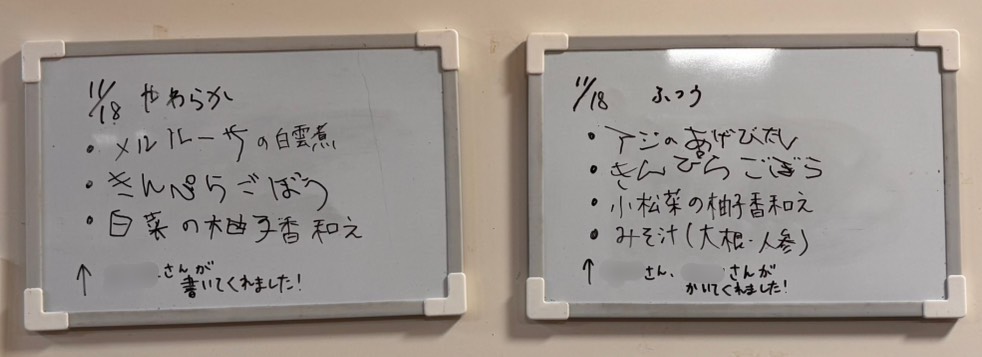 11/18 やわらか
・メルルーサの白雲煮
・きんぴらごぼう
・白菜の柚子香和え
↑ さんが
書いてくれました!
11/18 ふつう
・アジのあげびたし
・きんぴらごぼう
・小松菜の柚子香和え
・みそ汁(大根・人参)
↑ さん、 さんが
かいてくれました!